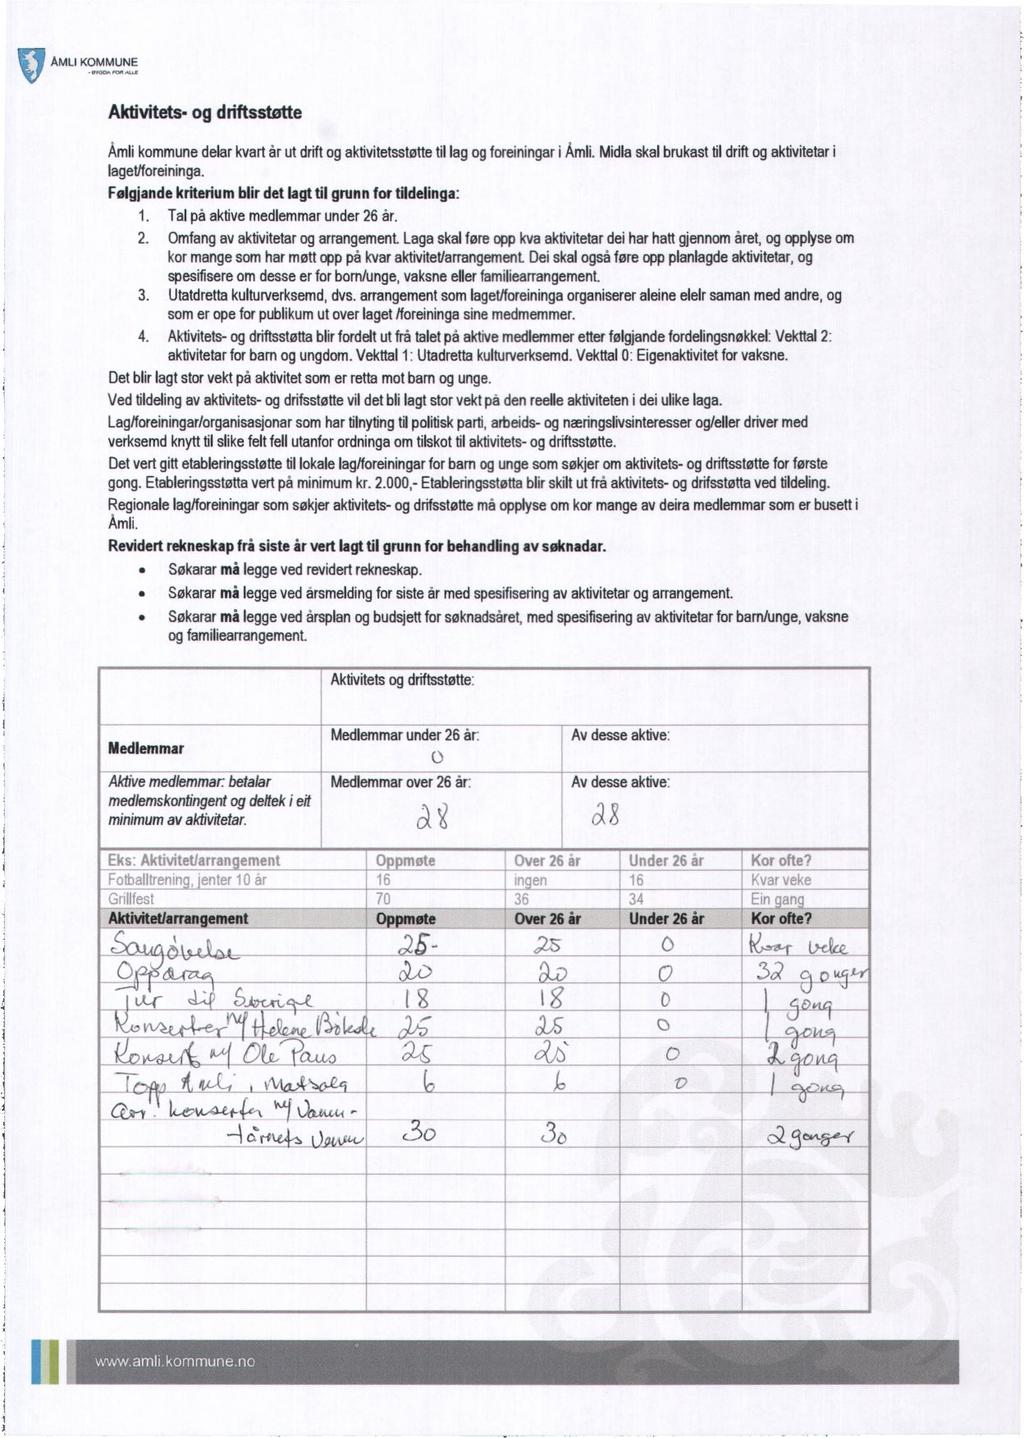 ÅMLI KOMMUNE
- BYGDA FOR ALLE
Aktivitets- og driftsstøtte
Åmli kommune delar kvart år ut drift og aktivitetsstøtte til lag og foreiningar i Åmli. Midla skal brukast til drift og aktivitetar i
laget/foreininga.
Følgjande kriterium blir det lagt til grunn for tildelinga:
1. Tal på aktive medlemmar under 26 år.
2. Omfang av aktivitetar og arrangement. Laga skal føre opp kva aktivitetar dei har hatt gjennom året, og opplyse om
kor mange som har møtt opp på kvar aktivitet/arrangement. Dei skal også føre opp planlagde aktivitetar, og
spesifisere om desse er for born/unge, vaksne eller familiearrangement.
3. Utatdretta kulturverksemd, dvs. arrangement som laget/foreininga organiserer aleine elelr saman med andre, og
som er ope for publikum ut over laget /foreininga sine medmemmer.
4. Aktivitets- og driftsstøtta blir fordelt ut frå talet på aktive medlemmer etter følgjande fordelingsnøkkel: Vekttal 2:
aktivitetar for barn og ungdom. Vekttal 1: Utadretta kulturverksemd. Vekttal 0: Eigenaktivitet for vaksne.
Det blir lagt stor vekt på aktivitet som er retta mot barn og unge.
Ved tildeling av aktivitets- og drifsstøtte vil det bli lagt stor vekt på den reelle aktiviteten i dei ulike laga.
Lag/foreiningar/organisasjonar som har tilnyting til politisk parti, arbeids- og næringslivsinteresser og/eller driver med
verksemd knytt til slike felt fell utanfor ordninga om tilskot til aktivitets- og driftsstøtte.
Det vert gitt etableringsstøtte til lokale lag/foreiningar for barn og unge som søkjer om aktivitets- og driftsstøtte for første
gong. Etableringsstøtta vert på minimum kr. 2.000,- Etableringsstøtta blir skilt ut frå aktivitets- og drifsstøtta ved tildeling.
Regionale lag/foreiningar som søkjer aktivitets- og drifsstøtte må opplyse om kor mange av deira medlemmar som er busett i
Åmli.
Revidert rekneskap frå siste år vert lagt til grunn for behandling av søknadar.
• Søkarar må legge ved revidert rekneskap.
• Søkarar må legge ved årsmelding for siste år med spesifisering av aktivitetar og arrangement.
• Søkarar må legge ved årsplan og budsjett for søknadsåret, med spesifisering av aktivitetar for barn/unge, vaksne
og familiearrangement.
Aktivitets og driftsstøtte:
Medlemmar
Medlemmar under 26 år: Av desse aktive:
0
Aktive medlemmar: betalar
medlemskontingent og deltek i eit
minimum av aktivitetar.
Medlemmar over 26 år: Av desse aktive:
28 28
Eks: Aktivitet/arrangement Oppmøte Over 26 år Under 26 år Kor ofte?
Fotballtrening, jenter 10 år 16 ingen 16 Kvar veke
Grillfest 70 36 34 Ein gang
Aktivitet/arrangement Oppmøte Over 26 år Under 26 år Kor ofte?
Songøvelse 25- 25 0 Kvar veke
Oppdrag 20 20 0 32 gonger
Tur til Sverige 18 18 0 1 gong
Konserter m/ Helene Bøksle 25 25 0 1 gong
Konsert m/ Ole Paus 25 25 0 2 gong
Topp Åmli, Matsalg 6 6 0 1 gong
Arr. konserter m/ Vann-
tårnets Venner 30 30 2 ganger
www.amli.kommune.no